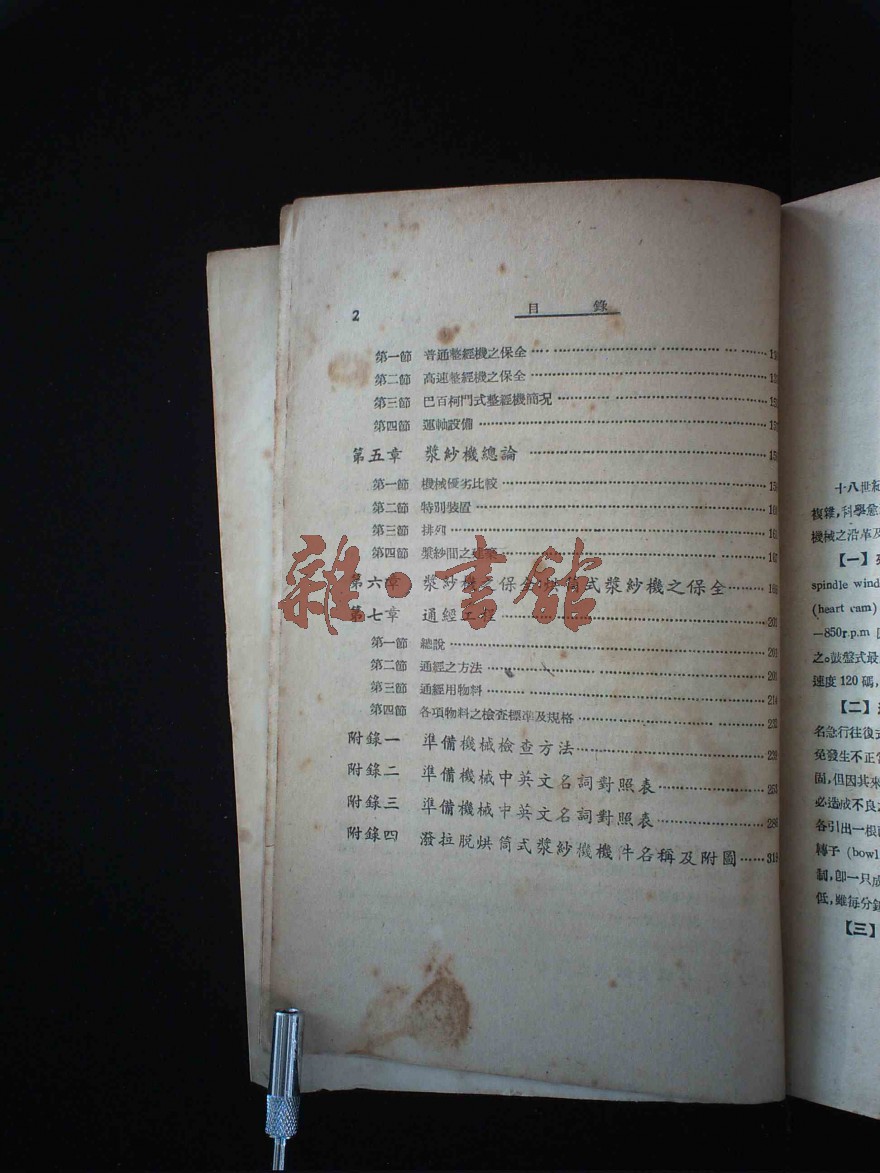 2 目錄
第一節 普通整經機之保全
第二節 高速整經機之保全
第三節 巴百柯門式整經機簡況
第四節 運軸設備
第五章 漿紗機總論
第一節 機械優劣比較
第二節 特別裝置
第三節 排列
第四節 漿紗間之建築
第六章 漿紗機之保全烘筒式漿紗機之保全
第七章 通經工程
第一節 總說 201
第二節 通經之方法 201
第三節 通經用物料 214
第四節 各項物料之檢查標準及規格 232
附錄一 準備機械檢查方法 239
附錄二 準備機械中英文名詞對照表
附錄三 準備機械中英文名詞對照表
附錄四 潑拉脱烘筒式漿紗機機件名稱及附圖
雜·書館
十八世紀
複雜,科學愈
機械之沿革及
【一】
spindle wind
(heart cam)
—850r.p.m
之。鼓盤式最
速度 120 碼,
【二】
名急行往復式
免發生不正常
固,但因其來
必造成不良之
各引出一根
轉子 (bowl
制,卽一只成
低,雖每分鐘
【三】